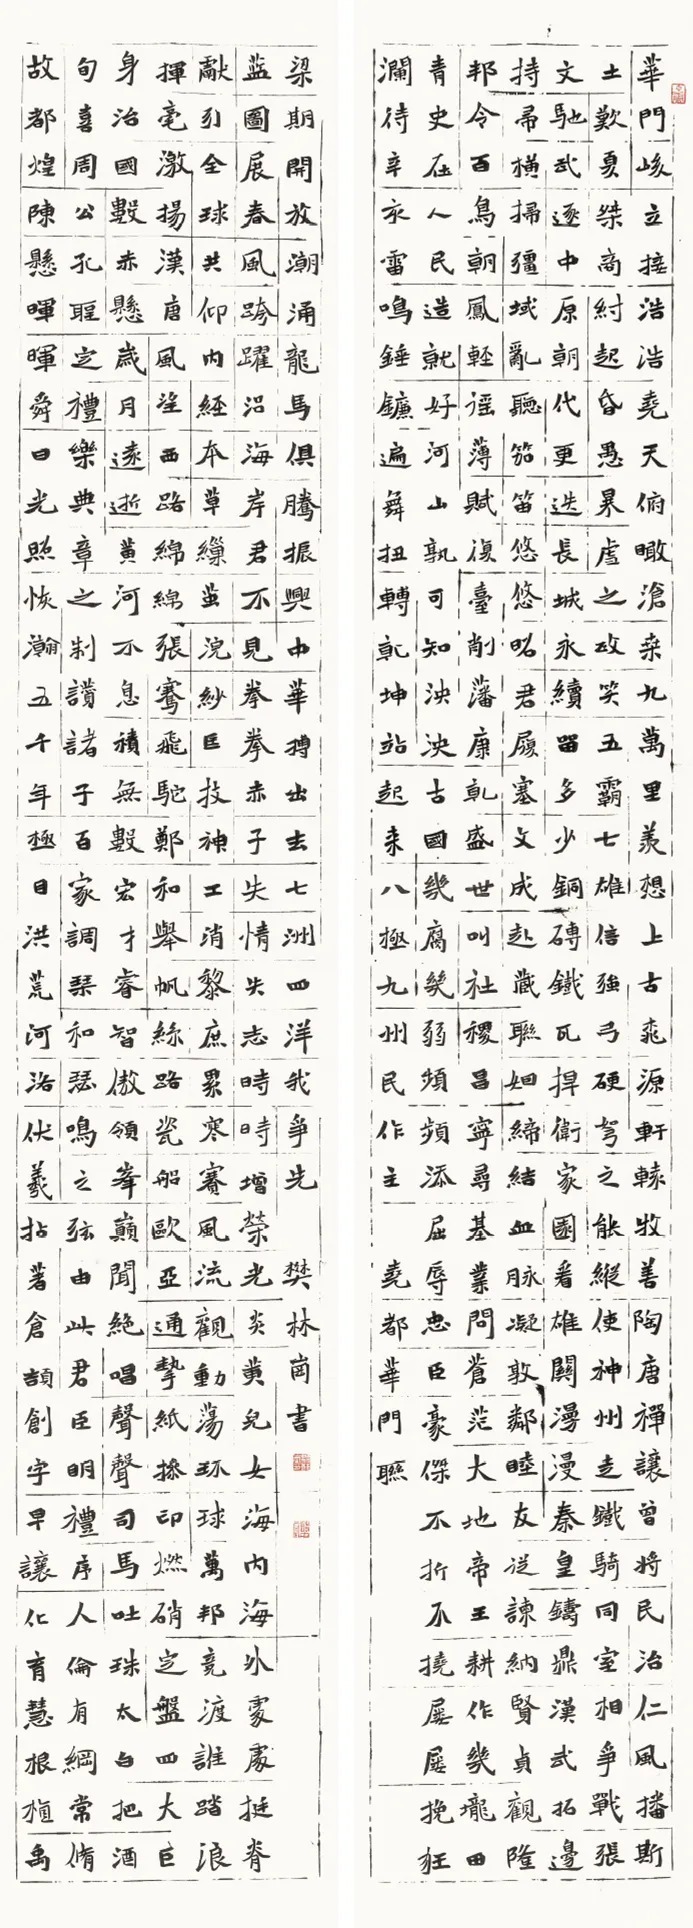 華門峻立接浩浩堯天俯瞰滄桑九萬里羨想上古飛源軒轅牧善陶唐禪讓曾將民治仁風播斯
土歎夏桀商紂起昏愚暴虐之政笑五霸七雄倍強弓硬弩之能縱使神州走鐵騎同室相爭戰張
文馳武逐中原朝代更迭長城永續留多少銅磚鐵瓦捍衛家園看雄關漫漫秦皇鑄鼎漢武拓邊
持帚橫掃疆域亂聽笳笛悠悠昭君履塞文成赴藏聯姻締結血脉凝敦鄰睦友從諫納賢貞觀隆
邦令百鳥朝鳳輕徭薄賦復臺削藩康乾盛世叫社稷昌寧尋基業問蒼茫大地帝王耕作幾壠田
青史在人民造就好河山孰可知泱泱古國幾腐幾弱頻頻添屈辱忠臣豪傑不折不撓屢屢挽狂
瀾待辛亥雷鳴錘鐮遍舞扭轉乾坤站起来八極九州民作主 堯都華門聯
故都煌陳懸暉暉舜日光照恢瀚五千年極目洪荒河洛伏羲拈蓍倉頡創字早讓化育慧根植禹
甸喜周公孔聖定禮樂典章之制讚諸子百家調琴和瑟鳴之弦由此君臣明禮序人倫有綱常脩
身治國數赤懸歲月遠逝黃河不息積無數宏才睿智傲領峯巔聞絕唱聲聲司馬吐珠太白把酒
揮毫激揚漢唐風望西路綿綿張騫飛駝鄭和舉帆絲路瓷船歐亞通摯紙摻印燃硝定盤四大巨
獻引全球共仰內經本草繅茧浣紗巨技神工消黎庶累寒賽風流觀動蕩环球萬邦竟渡誰踏浪
藍圖展春風跨躍沿海岸君不見拳拳赤子失情失志時時增榮光炎黃兒女海內海外處處挺脊
梁期開放潮涌龍馬俱騰振興中華搏出去七洲四洋我爭先 樊林崗書